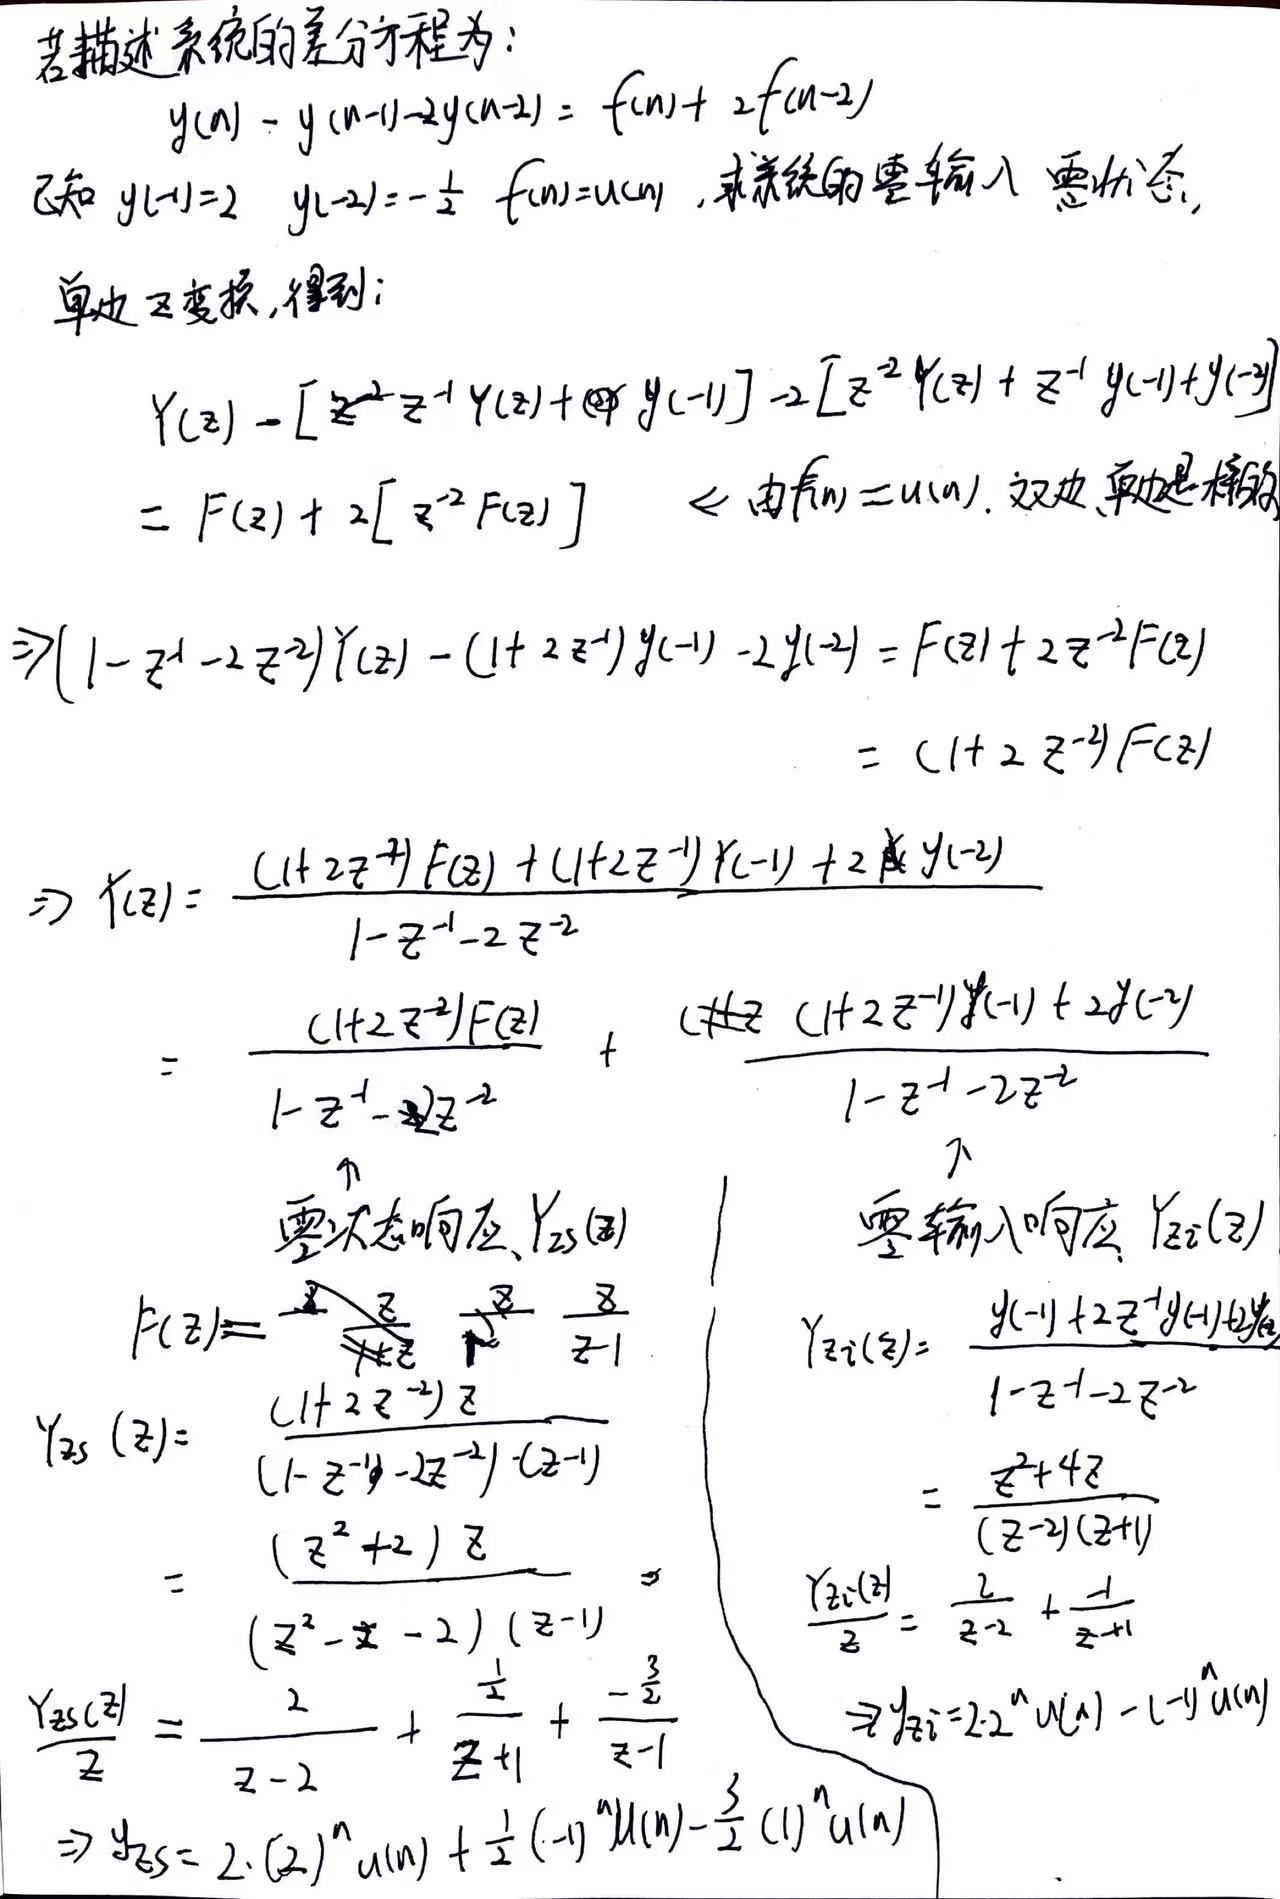 若描述系统的差分方程为:
y(n) - y(n-1)-2y(n-2) = f(n)+ 2f(n-2)
已知 y(-1)=2 y(-2)=-1/2 f(n)=u(n),求系统的零输入 零状态,
单边z变换,得到:
Y(z) - [z^-1 Y(z)+ y(-1)] -2[z^-2 Y(z) + z^-1 y(-1)+y(-2)]
= F(z) + 2[z^-2 F(z)] ← 由f(n)=u(n).双边、单边是一样的
⇒(1- z^-1 -2z^-2)Y(z) - (1+2z^-1)y(-1) -2y(-2) = F(z)+2z^-2F(z)
= (1+2z^-2)F(z)
⇒ Y(z)= ((1+2z^-2)F(z) +(1+2z^-1)Y(-1) +2y(-2)) / (1-z^-1-2z^-2)
= (1+2z^-2)F(z) / (1-z^-1-2z^-2) + ((1+2z^-1)y(-1) + 2y(-2)) / (1-z^-1-2z^-2)
↑
零状态响应、Yzs(z)
F(z)= z/(z-1)
Yzs(z)= (1+2z^-2)z / ((1-z^-1-2z^-2)·(z-1))
= (z^2+2)z / ((z^2-z-2)(z-1)) =
Yzs(z)/z = 2/(z-2) + (1/2)/(z+1) + (-3/2)/(z-1)
⇒ yzs= 2·(2)^n u(n) + 1/2 (-1)^n u(n) - 3/2 (1)^n u(n)
↑
零输入响应、Yzi(z)
Yzi(z)= (y(-1)+2z^-1y(-1)+2y(-2)) / (1-z^-1-2z^-2)
= (z^2+4z) / ((z-2)(z+1))
Yzi(z)/z = 2/(z-2) + -1/(z+1)
⇒yzi=2·2^n u(n) -(-1)^n u(n)